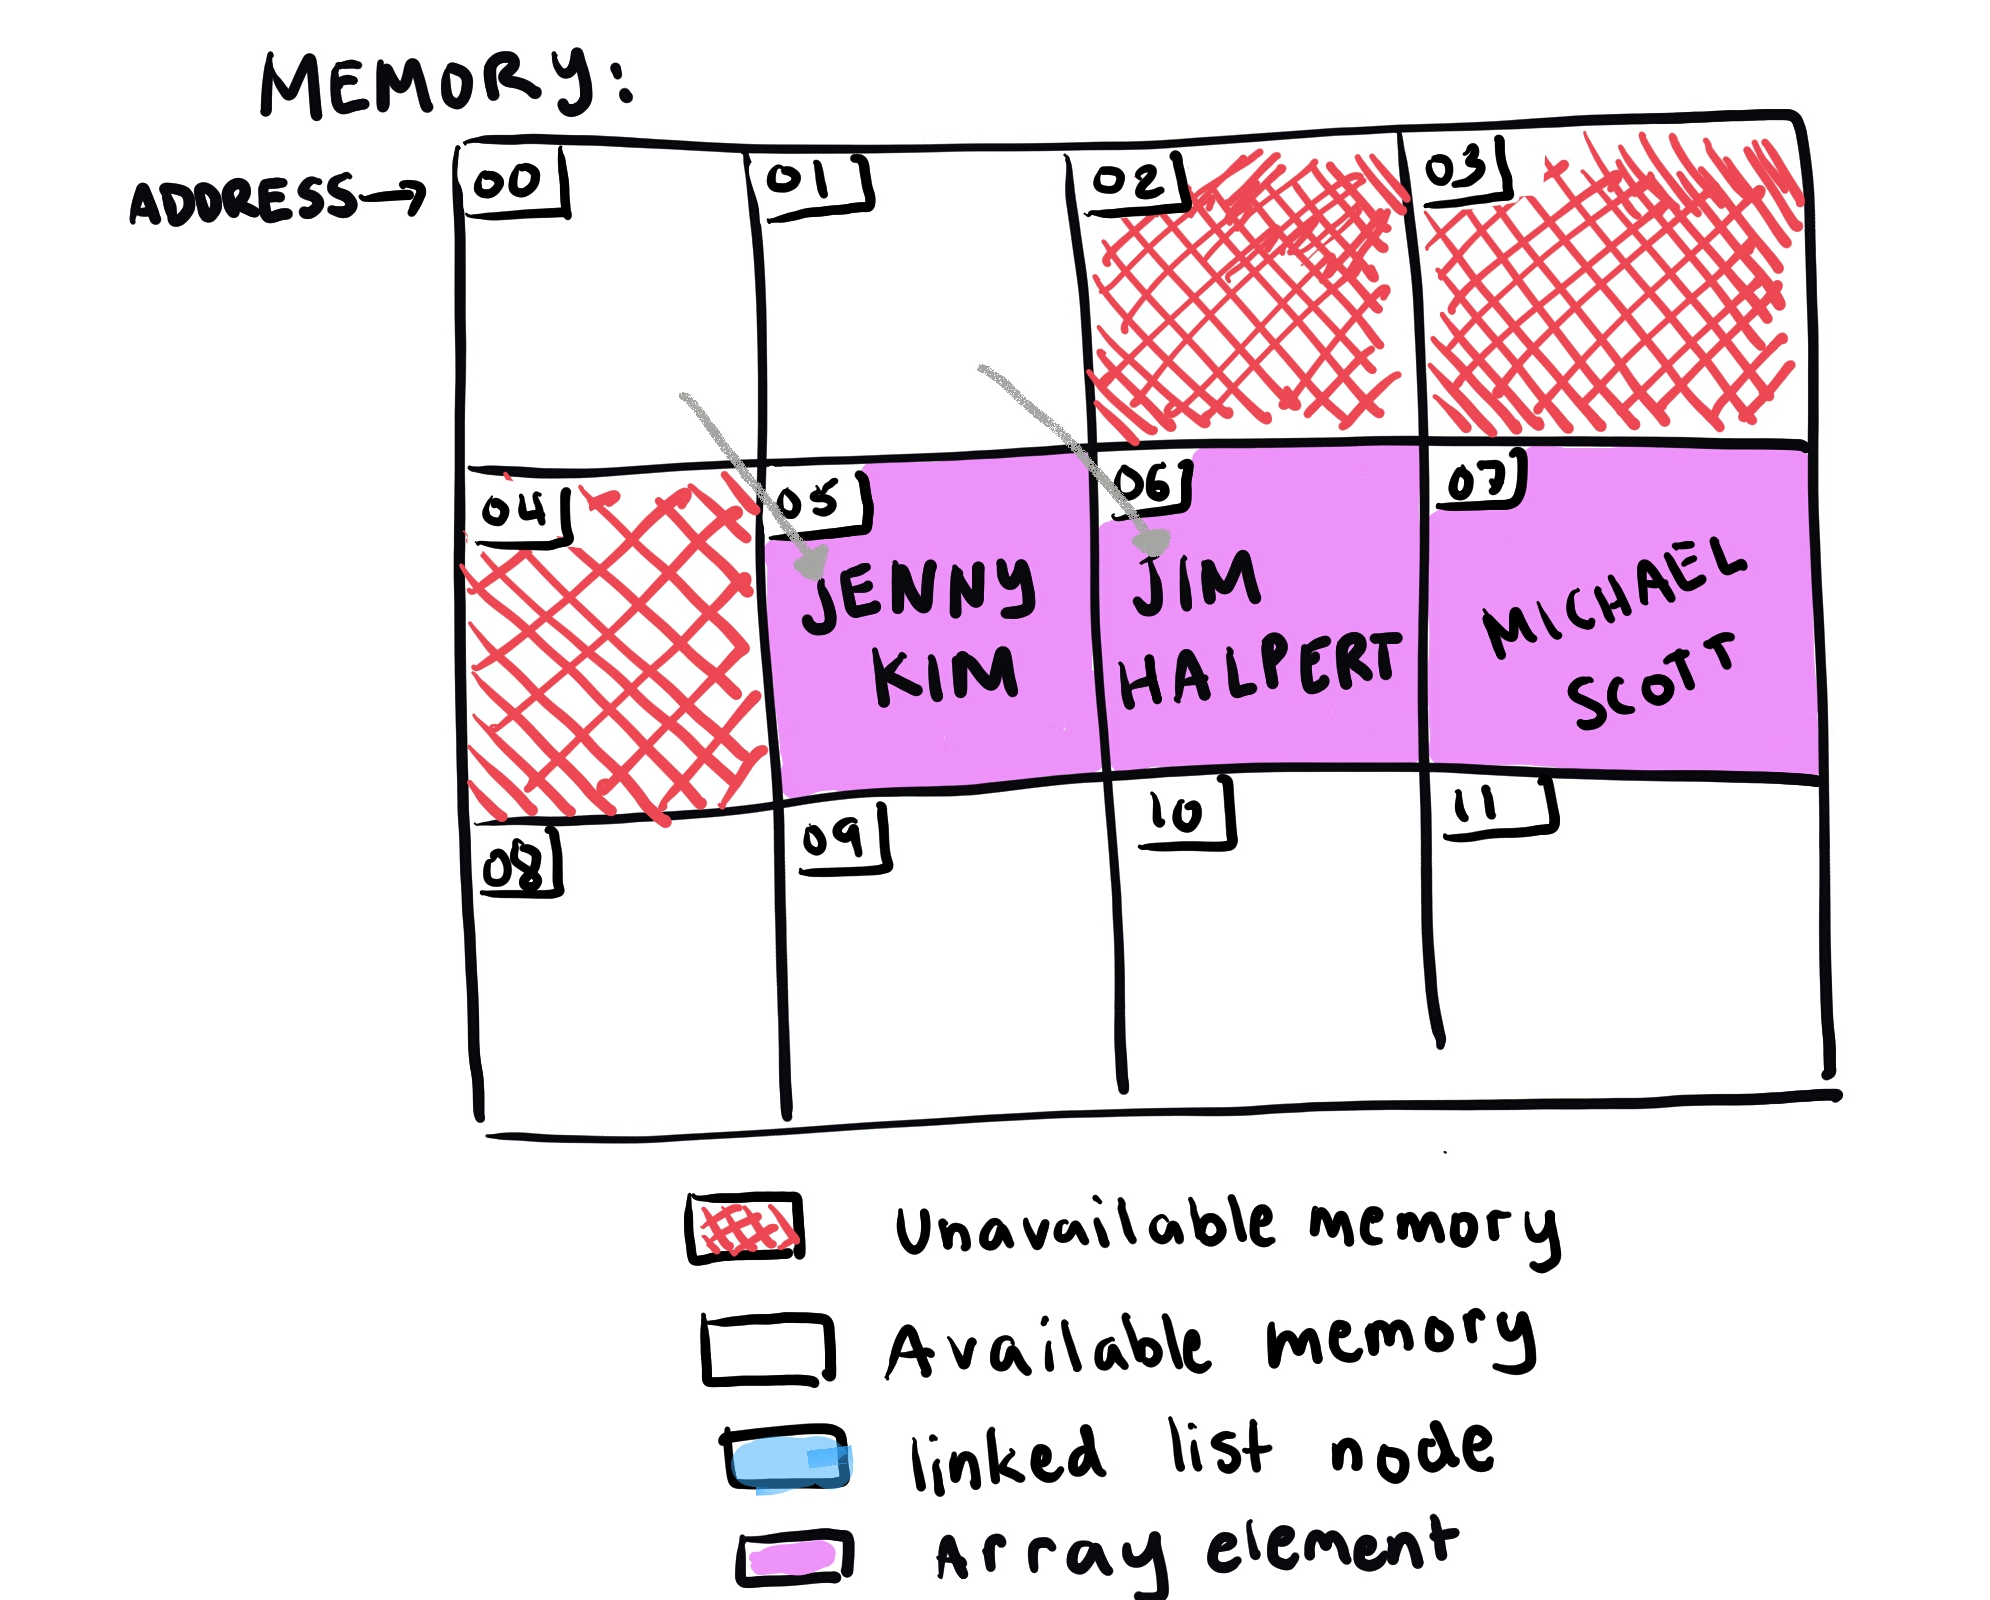 MEMORY:
ADDRESS→
00
01
02
03
04
05
06
07
JENNY
KIM
JIM
HALPERT
MICHAEL
SCOTT
08
09
10
11
Unavailable memory
Available memory
linked list node
Array element